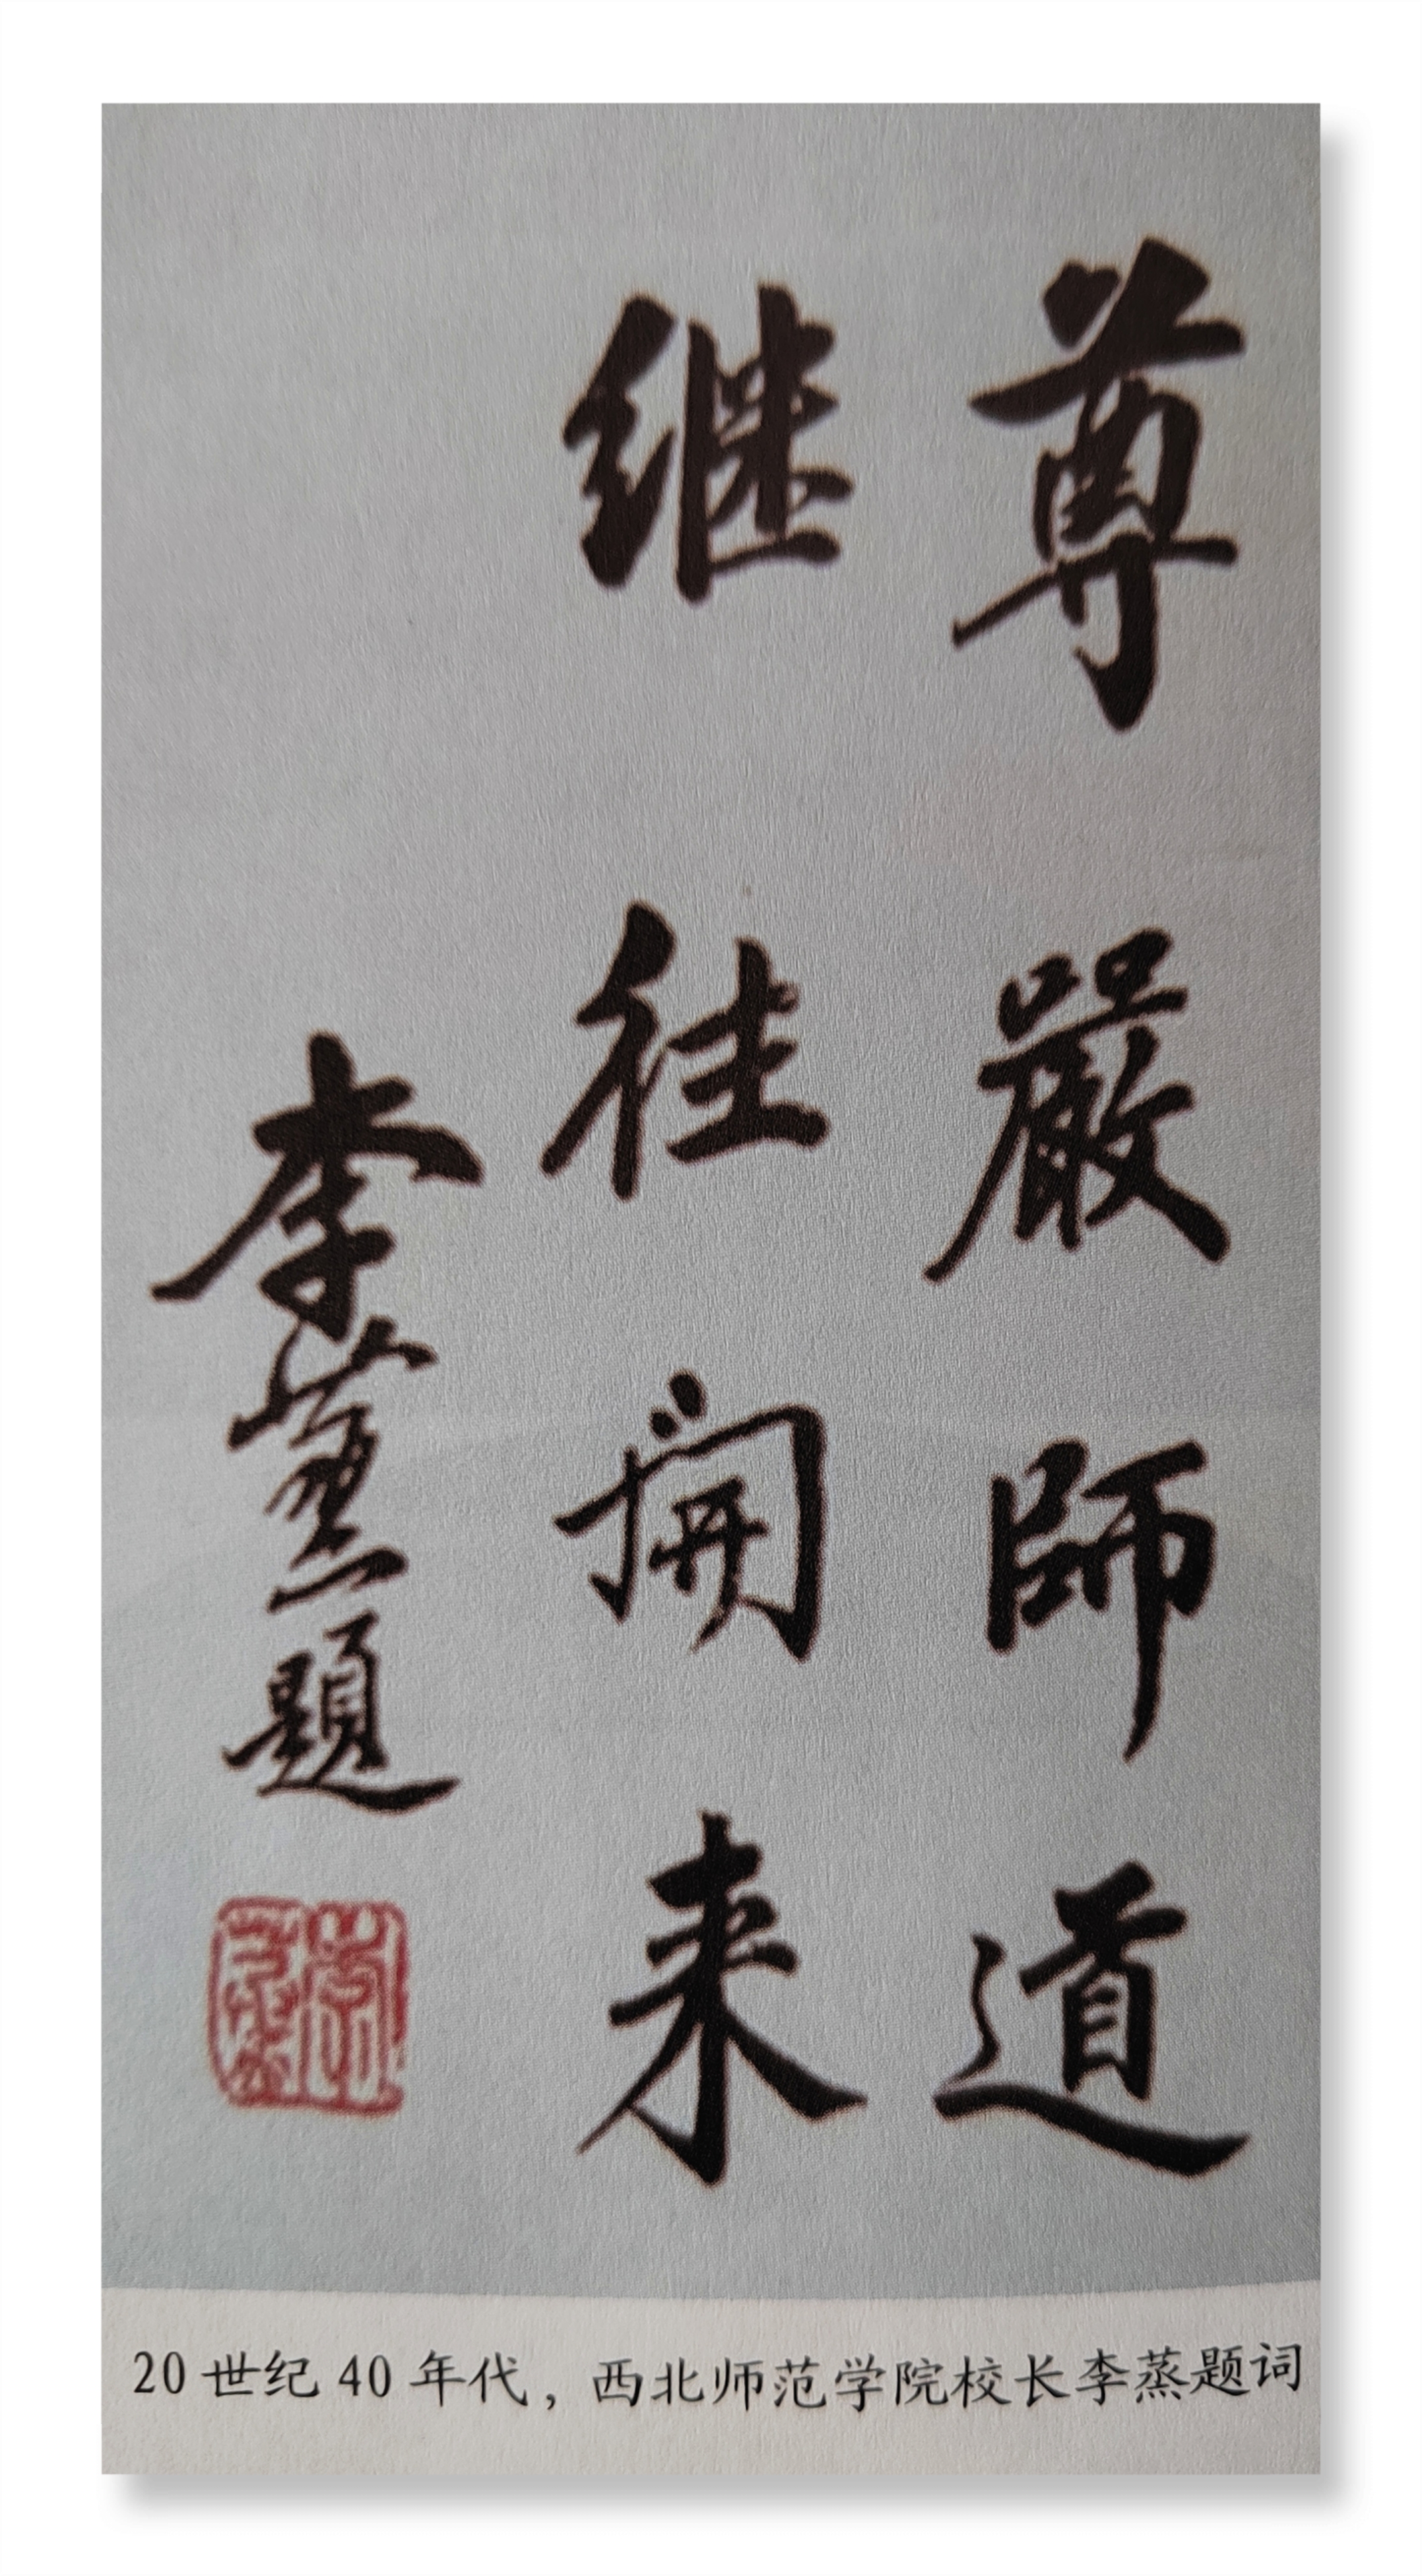 尊嚴師道
继往開来
李蒸題
20世纪40年代，西北师范学院校长李蒸题词